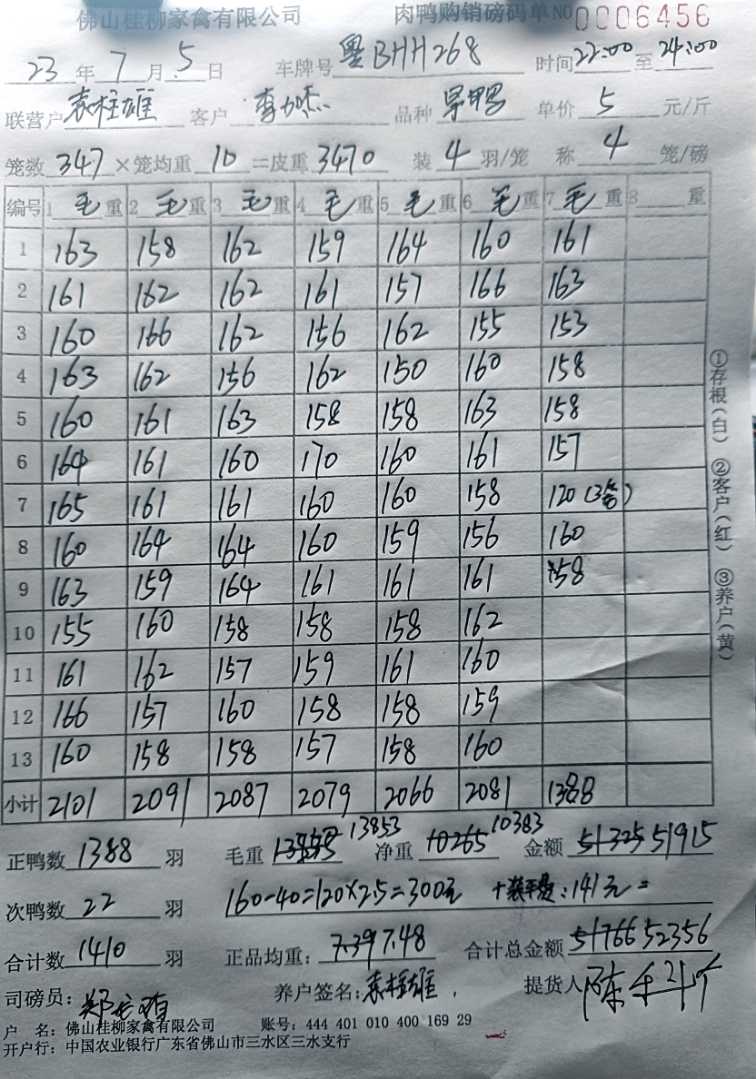 佛山桂柳家禽有限公司 肉鸭购销磅码单 NO 0006456
23 年 7 月 5 日 车牌号 粤BHH268 时间 22:00 至 24:00
联营户 袁柱雄 客户 品种 单价 5 元/斤
笼数 347 ×笼均重 10 =皮重 3470 装 4 羽/笼 称 4 笼/磅
编号 1 毛 重 2 毛 重 3 毛 重 4 毛 重 5 毛 重 6 毛 重 7 毛 重 8 重
1 163 158 162 159 164 160 161
2 161 162 162 161 157 166 163
3 160 166 162 156 162 155 153
4 163 162 156 162 150 160 158
5 160 161 163 158 158 163 158
6 164 161 160 170 160 161 157
7 165 161 161 160 160 158 120 (3笼)
8 160 164 164 160 159 156 160
9 163 159 164 161 161 161 158
10 155 160 158 158 158 162
11 161 162 157 159 161 160
12 166 157 160 158 158 159
13 160 158 158 157 158 160
小计 2101 2091 2087 2079 2066 2081 1388
正鸭数 1388 羽 毛重 13853 净重 10265 10383 金额 51325 51915
次鸭数 22 羽 160-40=120×2.5=300元 141元=
合计数 1410 羽 正品均重: 7.39 7.48 合计总金额 51766 52356
司磅员: 养户签名: 袁柱雄 提货人
户 名: 佛山桂柳家禽有限公司 账号: 444 401 010 400 169 29
开户行: 中国农业银行广东省佛山市三水区三水支行
①存根(白) ②客户(红) ③养户(黄)